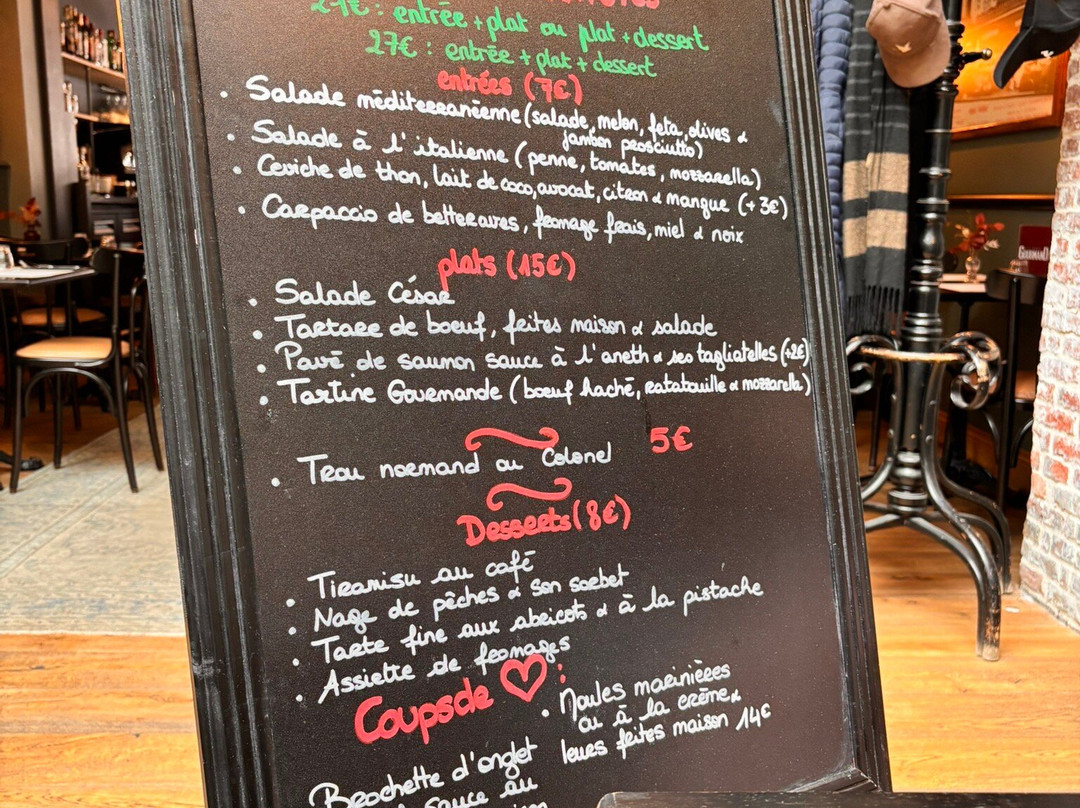 entrée + plat ou plat + dessert
27€ : entrée + plat + dessert
entrées (7€)
. Salade méditerranéenne (salade, melon, feta, olives &
jambon prosciutto)
. Salade à l'italienne (penne, tomates, mozzarella)
. Ceviche de thon, lait de coco, avocat, citron & mangue (+3€)
. Carpaccio de betteraves, fromage frais, miel & noix
plats (15€)
. Salade César
. Tartare de boeuf, frites maison & salade
. Pavé de saumon sauce à l'aneth & ses tagliatelles (+2€)
. Tartine Gourmande (boeuf haché, ratatouille & mozzarella)
. Trou normand ou Colonel 5€
Desserts (8€)
. Tiramisu au café
. Nage de pêches & son sorbet
. Tarte fine aux abricots & à la pistache
. Assiette de fromages
Coups de ♡ :
. Moules marinières
ou à la crème &
leurs frites maison 14€
Brochette d'onglet
sauce au
GOURMAND